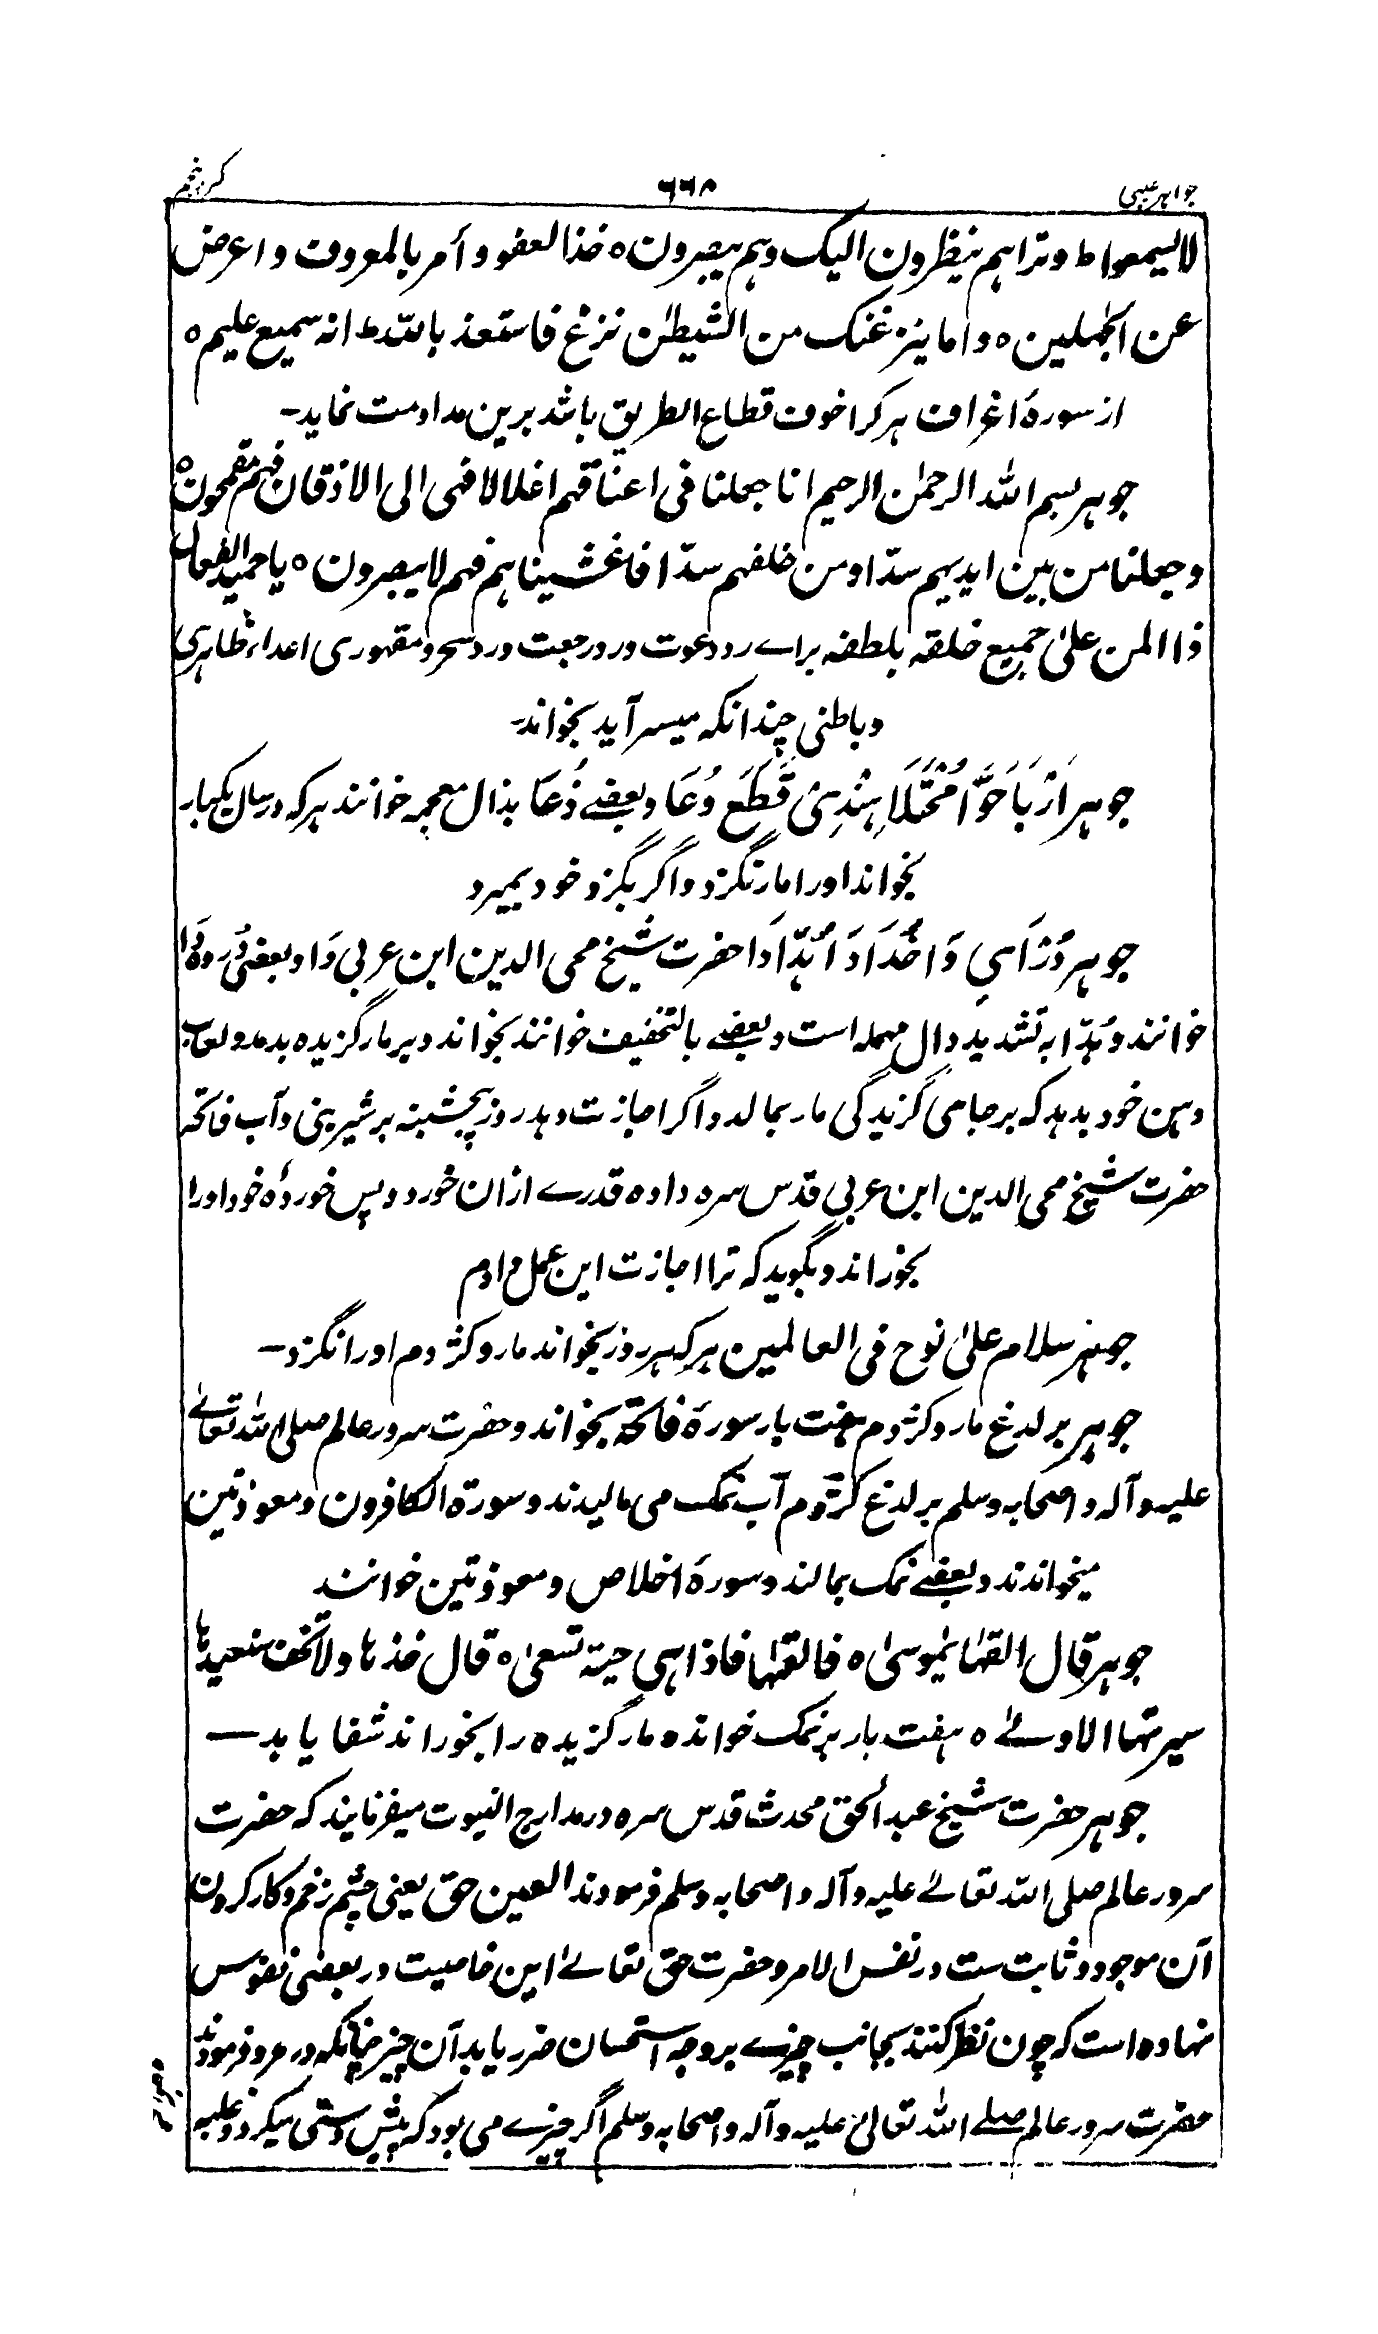 جواہر غیبی ۶۶۸ کنز پنجم
لا یسمعوا ط وتراہم ینظرون الیک وہم یبصرون ه خذ العفو و أمر بالمعروف و اعرض
عن الجٰہلین ه و اما ینزغنک من الشیطٰن نزغ فاستعذ باللہ ط انہ سمیع علیم ه
از سورۂ اعراف ہرکرا خوف قطاع الطریق باشد برین مداومت نماید۔
جوہر بسم اللہ الرحمٰن الرحیم انا جعلنا فی اعناقہم اغلالا فہی الی الاذقان فہم مقمحون ه
وجعلنا من بین ایدیہم سدّا ومن خلفہم سدّا فاغشیناہم فہم لا یبصرون ه یا حمید الفعال
ذا المن علیٰ جمیع خلقہ بلطفہ براے رد دعوت ورد رجعت ورد سحر و مقہوری اعداء ظاہری
و باطنی چندانکہ میسر آید بخواند۔
جوہر اَرْبَا حَوَّا مُحْتَلَا ہِنْدِیْ قَطَعَ دُعَا و بعضے ذُعَا بذال معجمہ خوانند ہرکہ در سال یکبار
بخواند اورا مار نگزد و اگر بگزد خود بمیرد
جوہر دُرْاَسِی دَ اخُدَادَ اہُدَّادَا حضرت شیخ محی الدین ابن عربی دَا و بعضی دُر ودَا
خوانند و ہُدَّا بہ تشدید دال مہملہ است و بعضے بالتخفیف خوانند بخواند و بر مار گزیدہ بدمد و لعاب
دہن خود بدہد کہ بر جامی گزیدگی مار بمالد و اگر اجازت دہد روز پنجشنبہ بر شیرینی و آب فاتحہ
حضرت شیخ محی الدین ابن عربی قدس سرہ دادہ قدرے ازان خورد و پس خوردۂ خود اورا
بخوراند و بگوید کہ ترا اجازت این عمل دادم
جوہر سلام علیٰ نوح فی العالمین ہرکہ ہر روز بخواند مار و کژدم اورا نگزد۔
جوہر بر لدغ مار و کژدم ہفت بار سورۂ فاتحہ بخواند و حضرت سرور عالم صلی اللہ تعالےٰ
علیہ و آلہ و اصحابہ وسلم بر لدغ کژدم آب نمک می مالیدند و سورۃ الکافرون و معوذتین
میخواندند و بعضے نمک بمالند و سورۂ اخلاص و معوذتین خوانند
جوہر قال القہا یٰموسیٰ ه فالقٰہا فاذا ہی حیۃ تسعیٰ ه قال خذہا ولا تخف سنعیدہا
سیرتہا الاولےٰ ه ہفت بار بر نمک خواندہ مار گزیدہ را بخوراند شفا یابد۔
جوہر حضرت شیخ عبد الحق محدث قدس سرہ در مدارج النبوت میفرمایند کہ حضرت
سرور عالم صلی اللہ تعالےٰ علیہ و آلہ و اصحابہ وسلم فرمودند العین حق یعنی چشم زخم و کار کردن
آن موجود و ثابت ست در نفس الامر و حضرت حق تعالےٰ این خاصیت در بعضی نفوس
نہادہ است کہ چون نظر کنند بجانب چیزے بر وجہ استحسان ضرر یابد آن چیز چنانکہ در مرو فرمودند
حضرت سرور عالم صلے اللہ تعالیٰ علیہ و آلہ و اصحابہ وسلم اگر چیزے می بود کہ پیش دستی میکرد و غلبہ